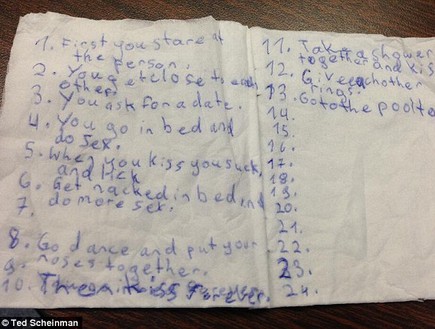 1. First you stare at
the person.
2. You get close to each
others
3. You ask for a date.
4. You go in bed and
do sex.
5. When you kiss you suck
and lick
6. Get nacked in bed, and
7. do more sex.
8. Go dance and put your
9. noses together.
10. forever.
11. Take a shower
together and kis
12. Give each other
13. rings.
Go to the pool to
14.
15.
16.
17.
18.
19.
20.
21.
22.
23.
24.
© Ted Scheinman